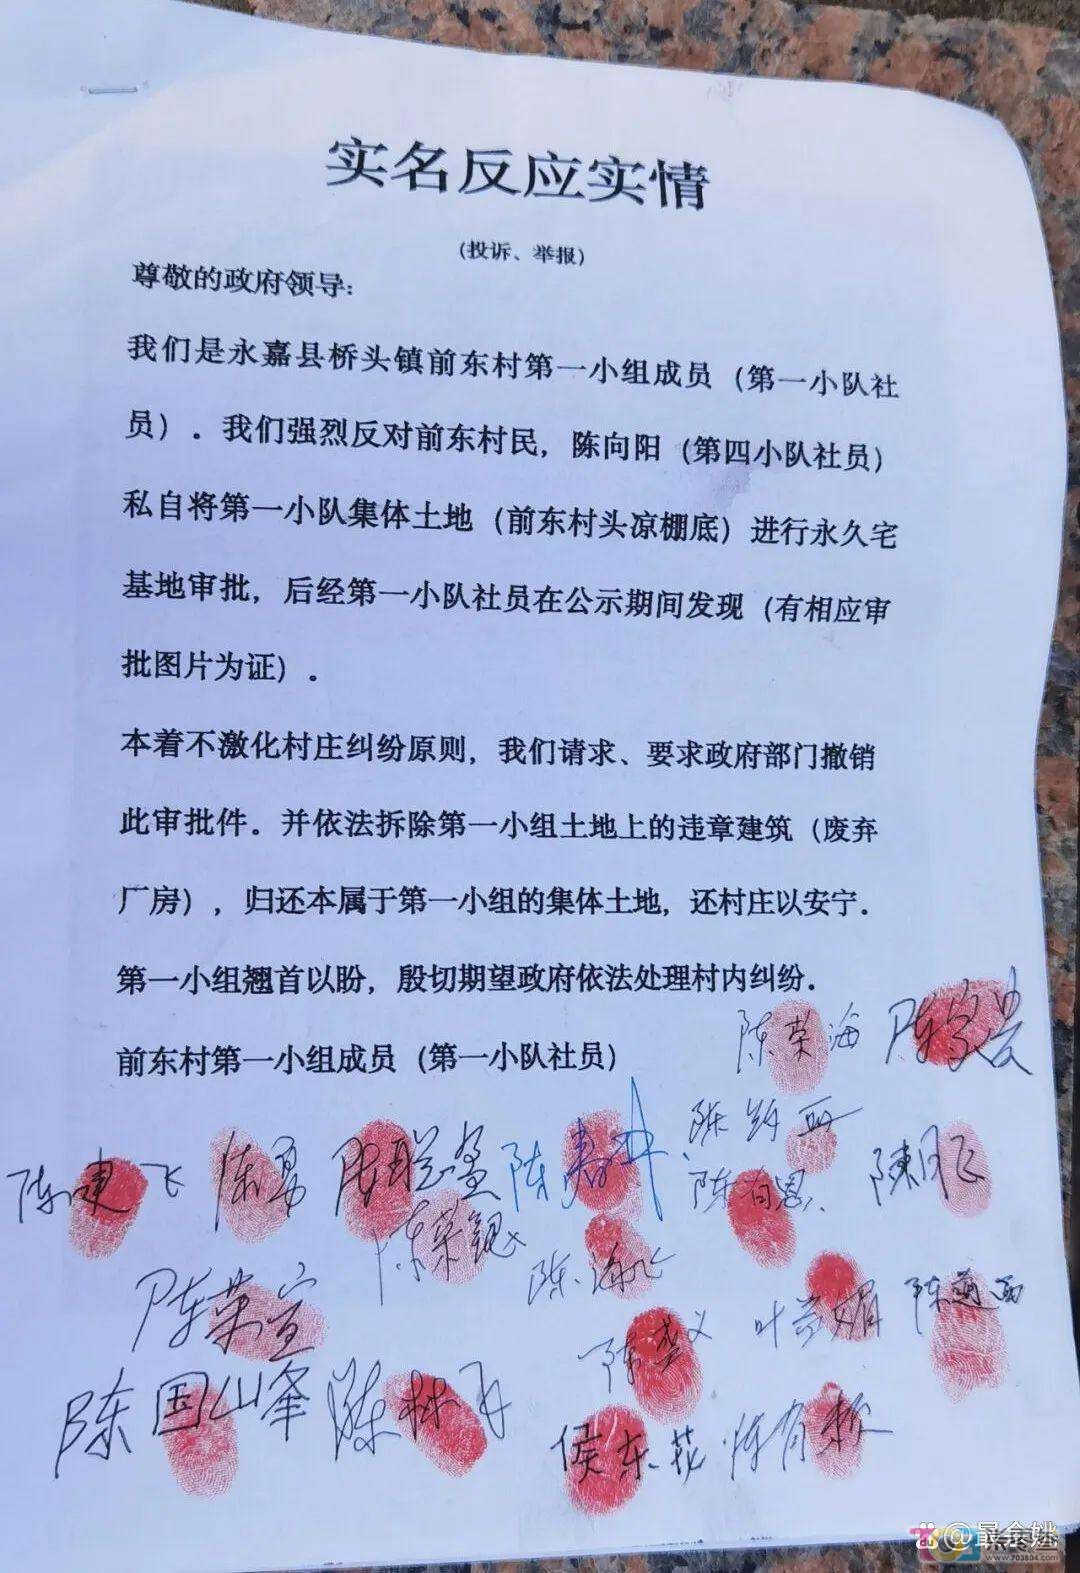 实名反应实情
（投诉、举报）
尊敬的政府领导：
我们是永嘉县桥头镇前东村第一小组成员（第一小队社
员）．我们强烈反对前东村民，陈向阳（第四小队社员）
私自将第一小队集体土地（前东村头凉棚底）进行永久宅
基地审批，后经第一小队社员在公示期间发现（有相应审
批图片为证）．
本着不激化村庄纠纷原则，我们请求、要求政府部门撤销
此审批件．并依法拆除第一小组土地上的违章建筑（废弃
厂房），归还本属于第一小组的集体土地，还村庄以安宁．
第一小组翘首以盼，殷切期望政府依法处理村内纠纷．
前东村第一小组成员（第一小队社员）
陈荣海
陈建飞 陈勇 陈寿
陈月飞
陈海
陈荣宣
叶 媚
陈国峰 陈林
侯东 陈有
@最余姚
www.703804.com